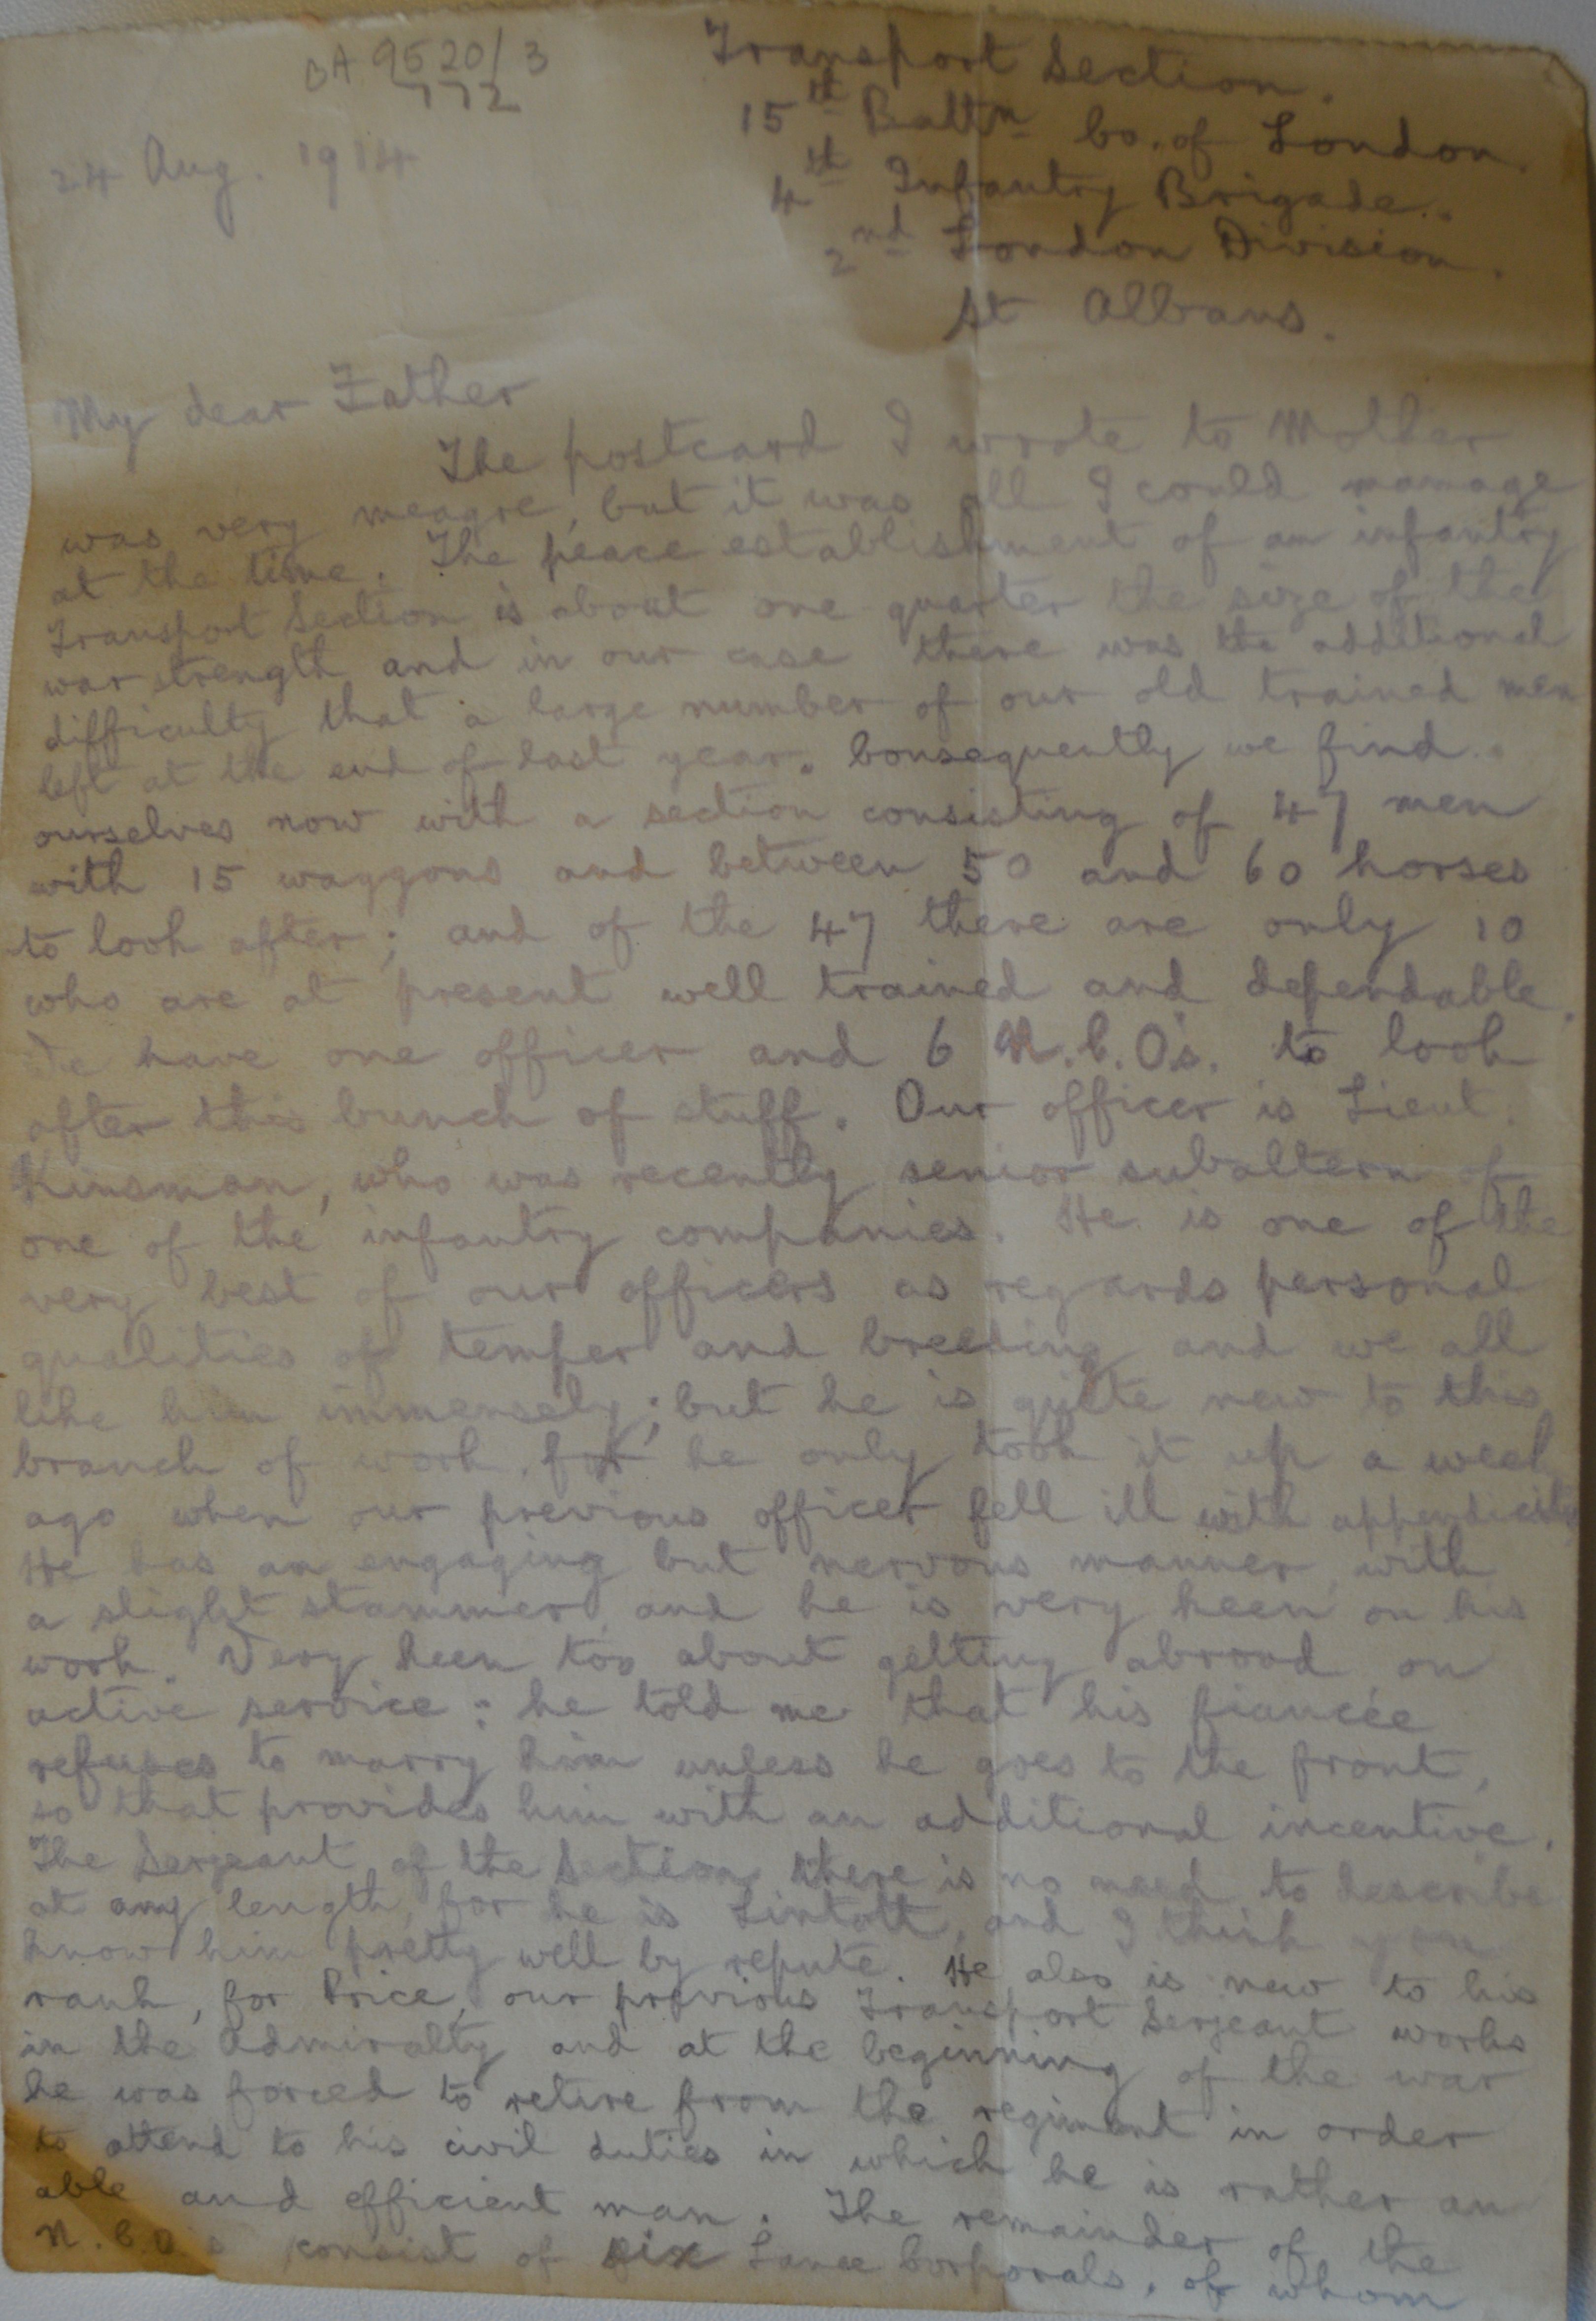 BA 9520/3
772
Transport Section.
15th Battn Co. of London.
4th Infantry Brigade.
2nd London Division.
St Albans.
24 Aug. 1914
My dear Father
The postcard I wrote to Mother
was very meagre, but it was all I could manage
at the time. The peace establishment of an infantry
Transport Section is about one quarter the size of the
war strength and in our case there was the additional
difficulty that a large number of our old trained men
left at the end of last year. Consequently we find
ourselves now with a section consisting of 47 men
with 15 waggons and between 50 and 60 horses
to look after; and of the 47 there are only 10
who are at present well trained and dependable.
We have one officer and 6 N.C.O's. to look
after this bunch of stuff. Our officer is Lieut.
Kinsman, who was recently senior subaltern of
one of the infantry companies. He is one of the
very best of our officers as regards personal
qualities of temper and breeding and we all
like him immensely; but he is quite new to this
branch of work, for he only took it up a week
ago when our previous officer fell ill with appendicitis.
He has an engaging but nervous manner, with
a slight stammer, and he is very keen on his
work. Very keen too about getting abroad on
active service: he told me that his fiancée
refuses to marry him unless he goes to the front,
so that provides him with an additional incentive.
The Sergeant of the Section there is no need to describe
at any length, for he is Lintott, and I think you
know him pretty well by repute. He also is new to his
rank, for Price, our previous Transport Serjeant works
in the Admiralty and at the beginning of the war
he was forced to retire from the regiment in order
to attend to his civil duties in which he is rather an
able and efficient man. The remainder of the
N.C.O.s consist of six Lance Corporals, of whom